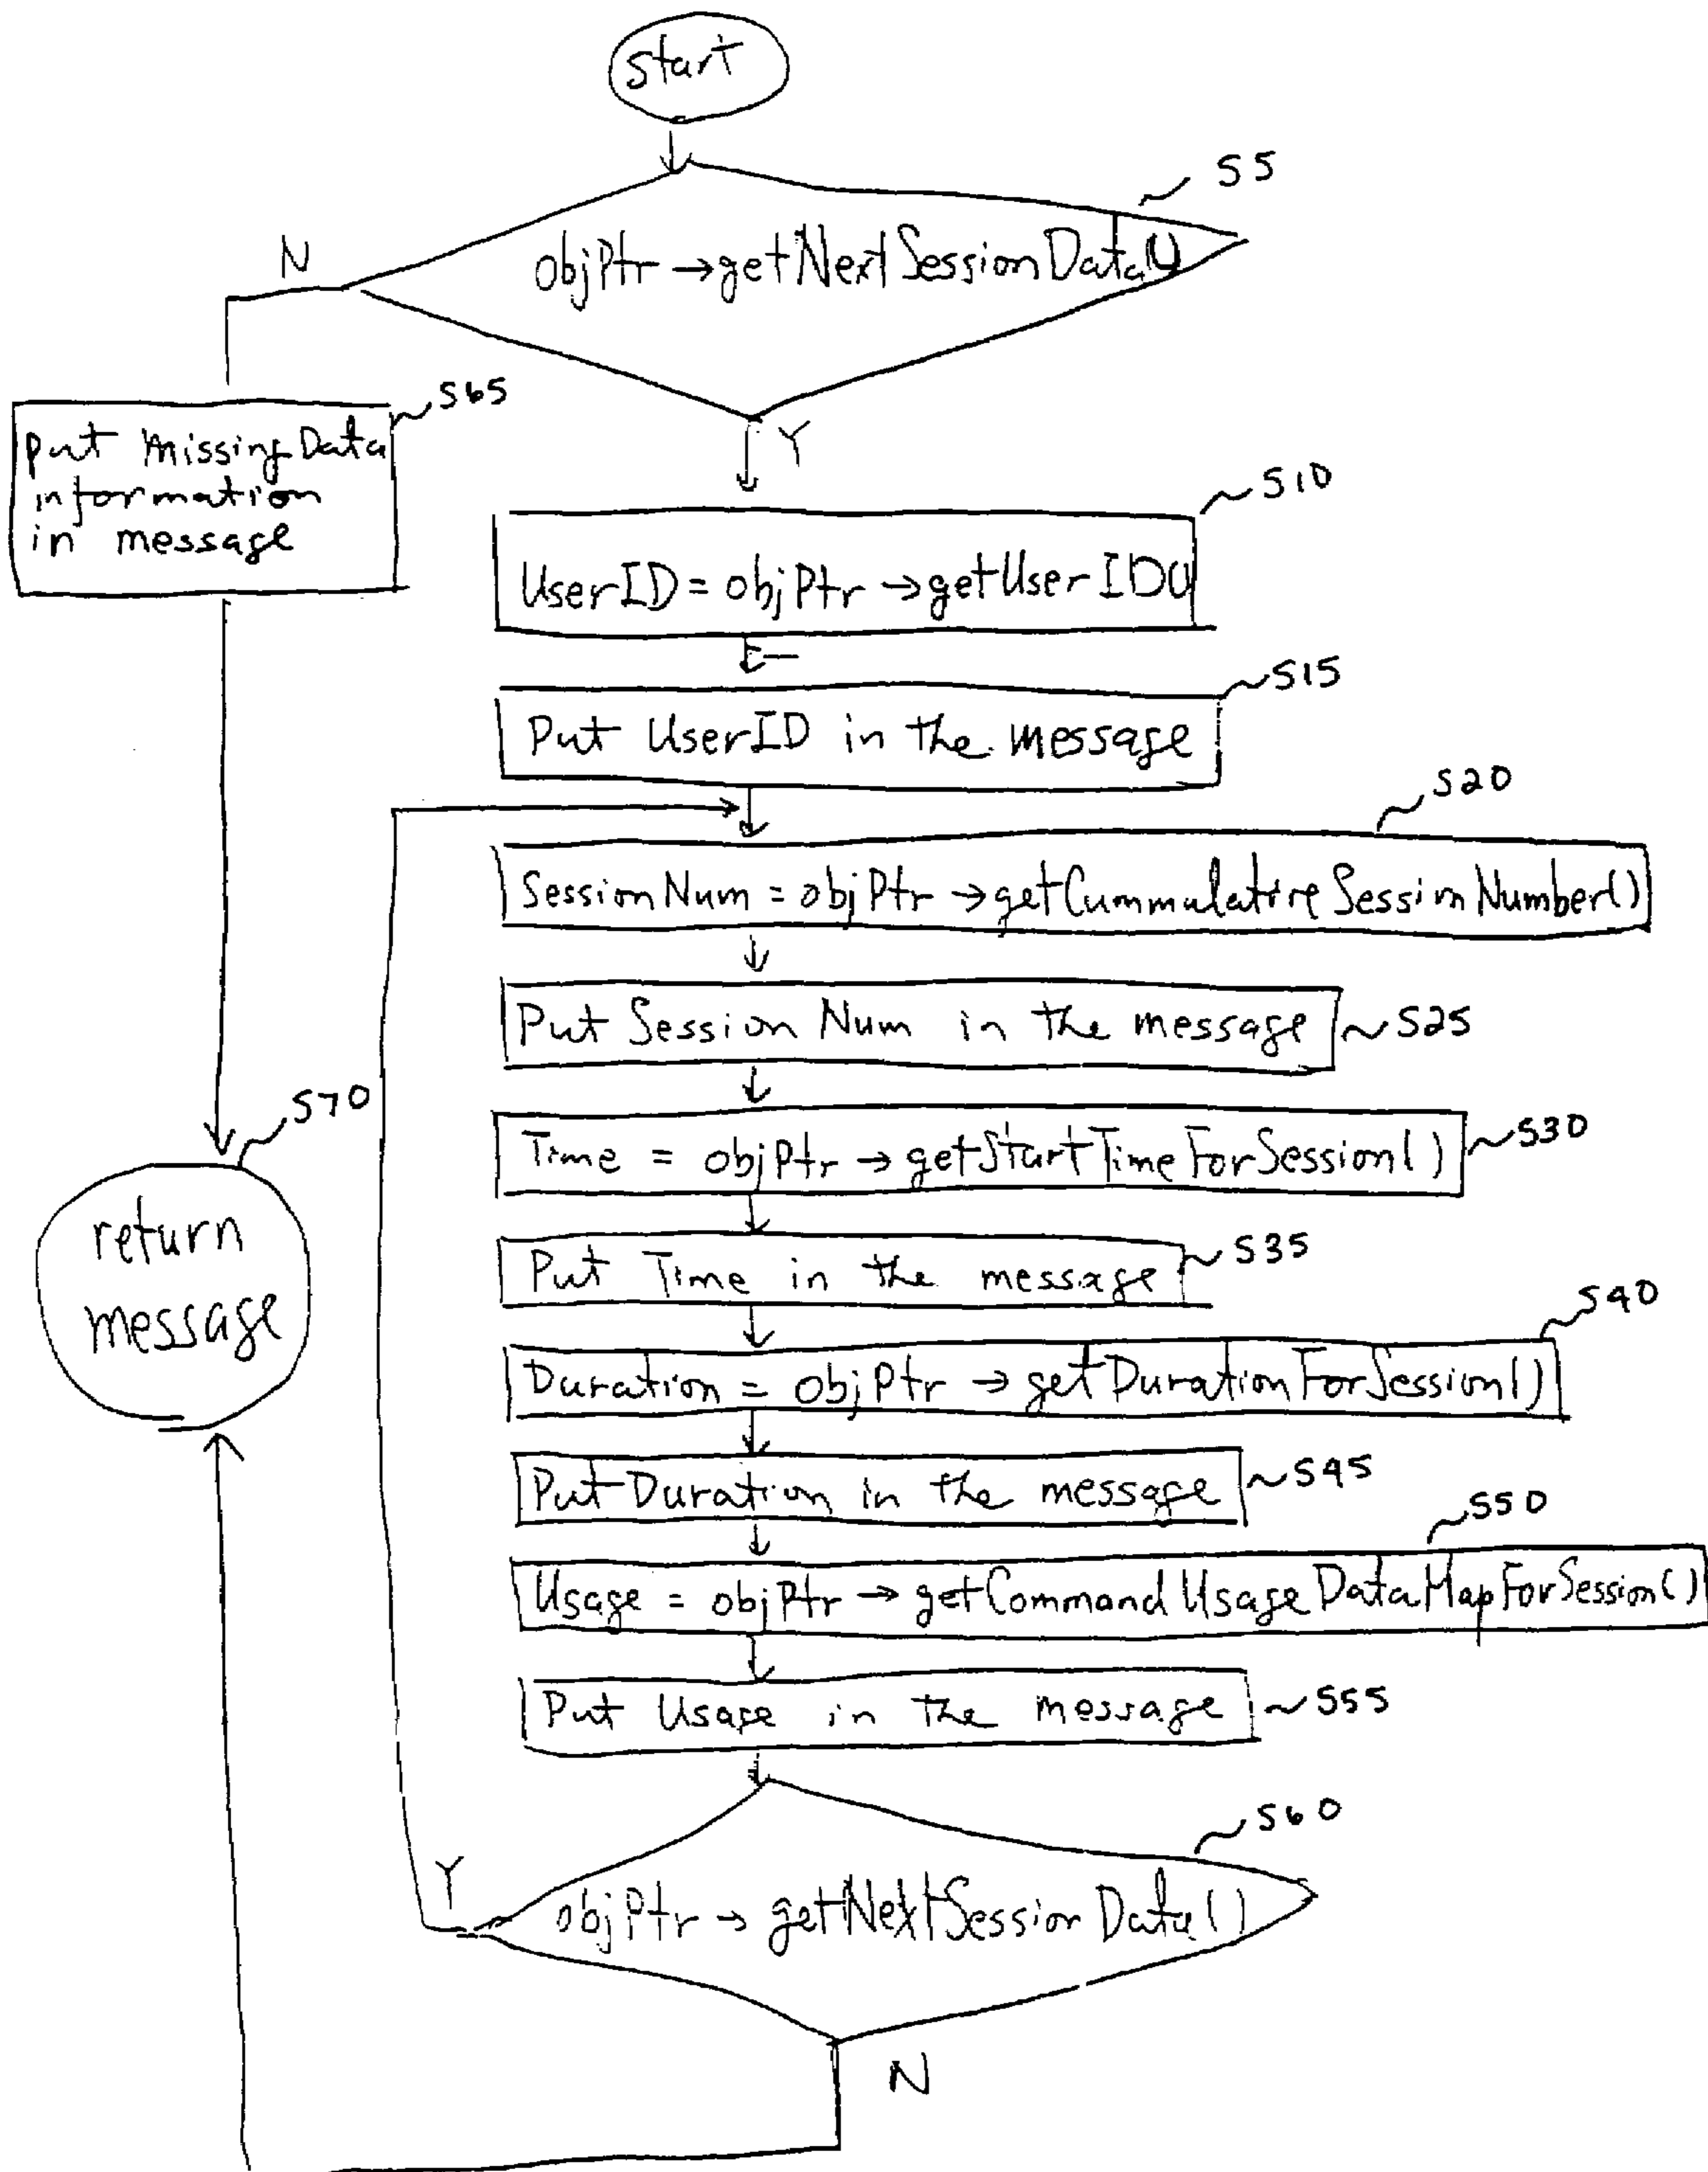 start
S5
N
objPtr →getNextSessionData()
Y
S65
put missingData
information
in message
S10
UserID = objPtr →getUserID()
S15
Put UserID in the message
S20
SessionNum = objPtr →getCummulativeSessionNumber()
Put Session Num in the message
S25
S70
Time = objPtr →getStartTimeForSession()
S30
return
message
Put Time in the message
S35
S40
Duration = objPtr →getDurationForSession()
Put Duration in the message
S45
S50
Usage = objPtr →getCommandUsageDataMapForSession()
Put Usage in the message
S55
S60
Y
objPtr →getNextSessionData()
N